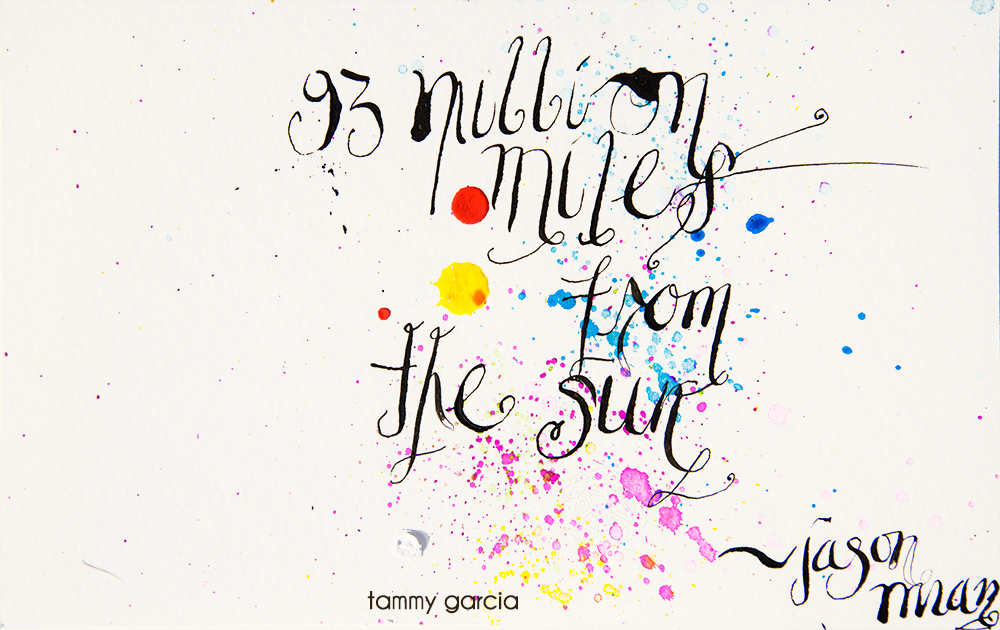 93 million
miles
from
the sun
~jason
mraz
tammy garcia